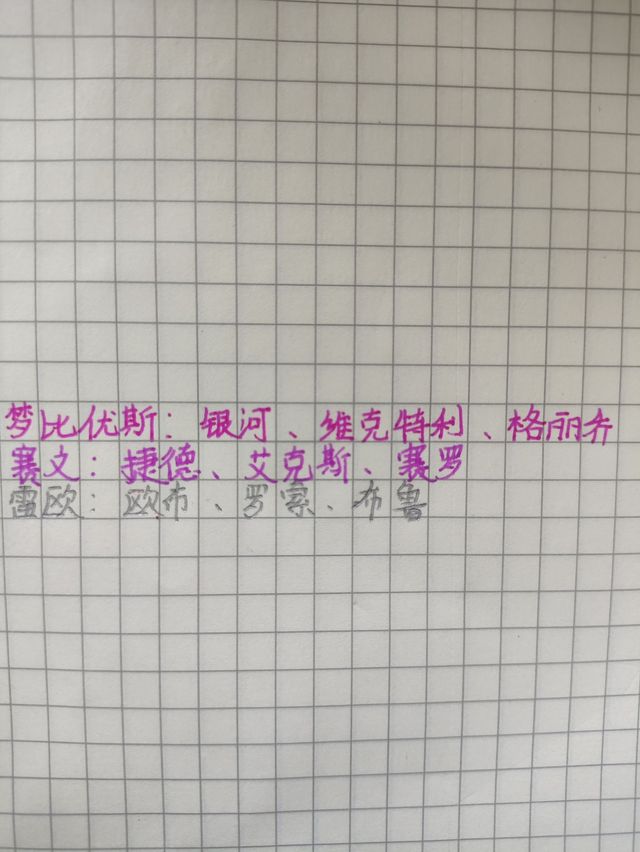 梦比优斯：银河、维克特利、格丽乔
赛文：捷德、艾克斯、赛罗
雷欧：欧布、罗索、布鲁